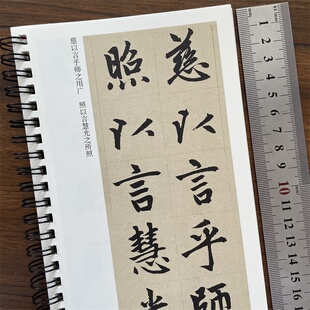 慈以言乎师之用广
照以言慧光之所照
慈以言乎師
照以言慧光
1 2 3 4 5 6 7 8 9 10 11 12 13 14 15 16